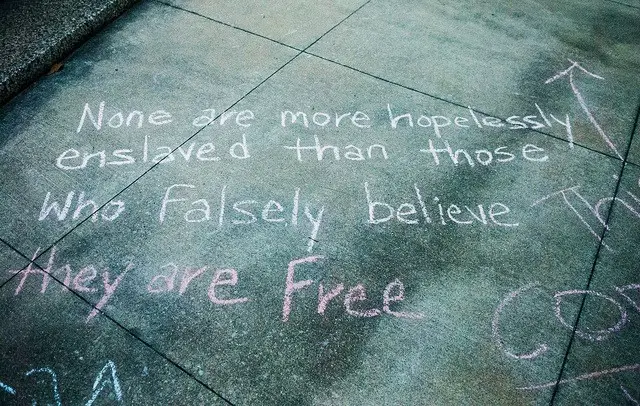 None are more hopelessly
enslaved than those
Who Falsely believe
they are Free